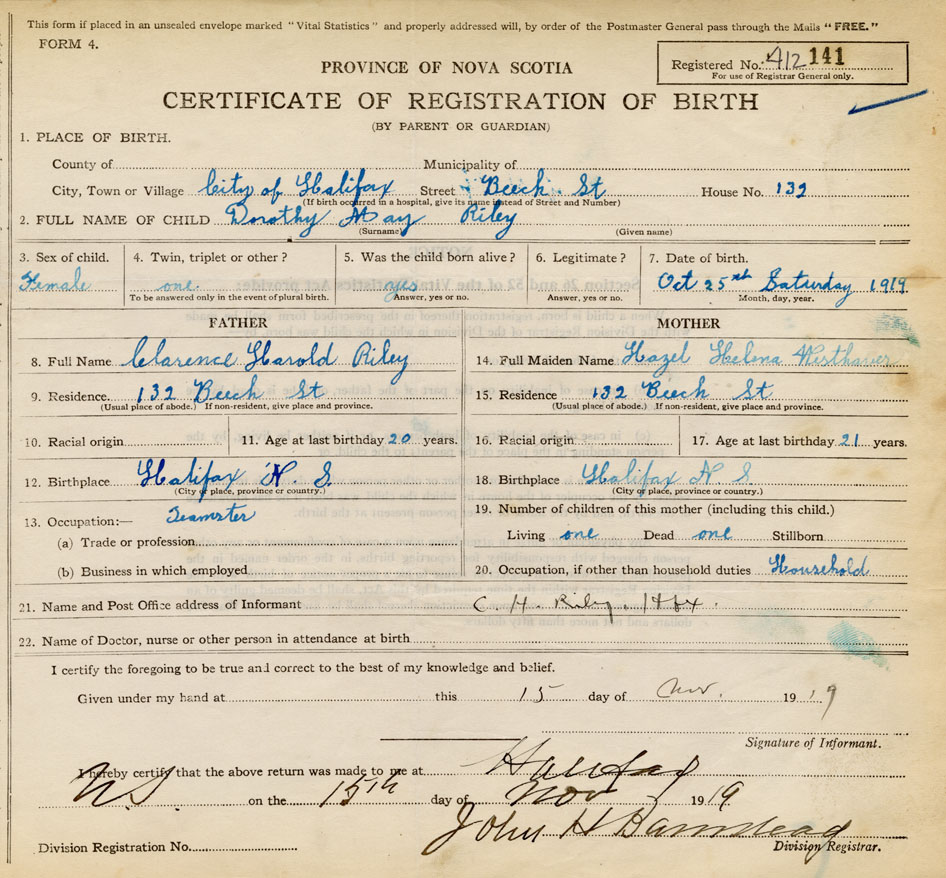 This form if placed in an unsealed envelope marked "Vital Statistics" and properly addressed will, by order of the Postmaster General pass through the Mails "FREE."
FORM 4.
Registered No. 412 141
For use of Registrar General only.
PROVINCE OF NOVA SCOTIA
CERTIFICATE OF REGISTRATION OF BIRTH
(BY PARENT OR GUARDIAN)
1. PLACE OF BIRTH.
County of Municipality of
City, Town or Village City of Halifax Street Beech St House No. 132
(If birth occurred in a hospital, give its name instead of Street and Number)
2. FULL NAME OF CHILD Dorothy May Riley
(Surname) (Given name)
3. Sex of child. 4. Twin, triplet or other? 5. Was the child born alive? 6. Legitimate? 7. Date of birth.
Female one yes Oct 25th Saturday 1919
To be answered only in the event of plural birth. Answer, yes or no. Answer, yes or no. Month, day, year.
FATHER MOTHER
8. Full Name Clarence Harold Riley 14. Full Maiden Name Hazel Helena Wersthaver
9. Residence 132 Beech St 15. Residence 132 Beech St
(Usual place of abode.) If non-resident, give place and province. (Usual place of abode.) If non-resident, give place and province.
10. Racial origin 11. Age at last birthday 20 years. 16. Racial origin 17. Age at last birthday 21 years.
12. Birthplace Halifax N. S. 18. Birthplace Halifax N S
(City or place, province or country.) (City or place, province or country.)
13. Occupation:— Teamster 19. Number of children of this mother (including this child.)
(a) Trade or profession Living one Dead one Stillborn
(b) Business in which employed 20. Occupation, if other than household duties Household
21. Name and Post Office address of Informant C. H. Riley. Hfx.
22. Name of Doctor, nurse or other person in attendance at birth
I certify the foregoing to be true and correct to the best of my knowledge and belief.
Given under my hand at this 15 day of Nov. 1919
Signature of Informant.
I hereby certify that the above return was made to me at Halifax
NS on the 15th day of Nov 1919
John H Barnstead
Division Registration No. Division Registrar.